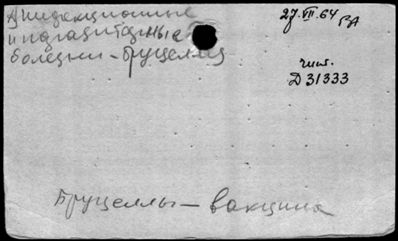 Инфекционные
и паразитарные
болезни – бруцеллез
27.VII.64 РА
чит.
Д 31333
Бруцеллы – вакцина